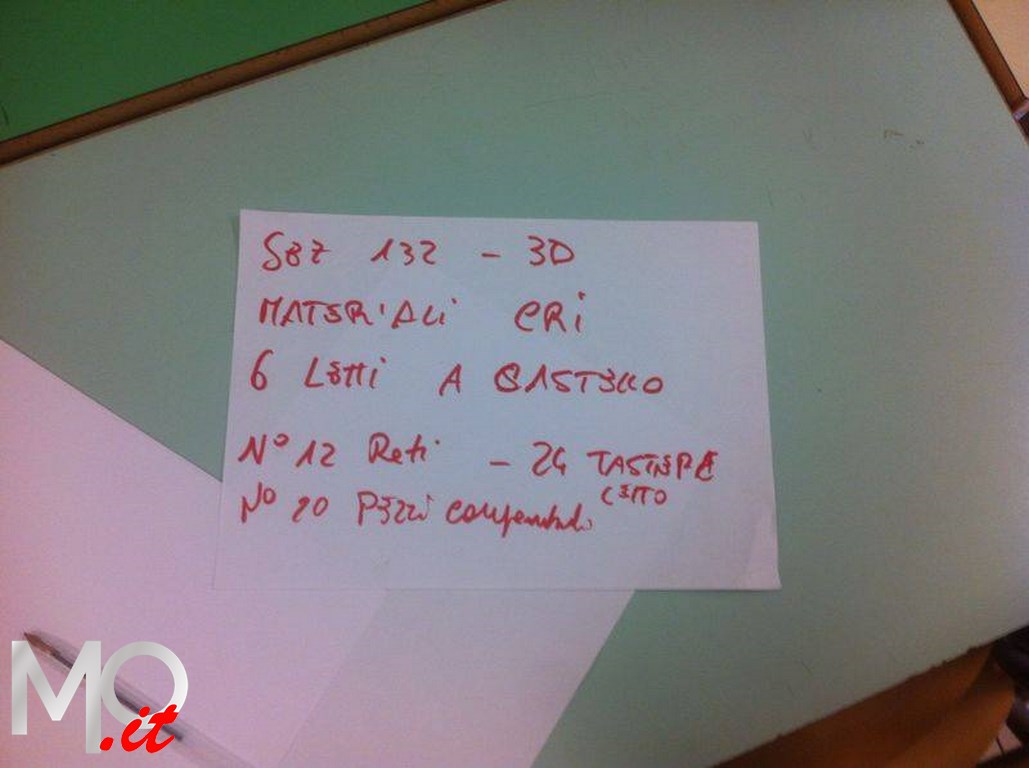 SBZ 132 - 3D
MATERIALI CRI
6 LETTI A CASTELLO
N° 12 Reti - 24 TASTIERE
LETTO
N° 20 PEZZI
MO.it